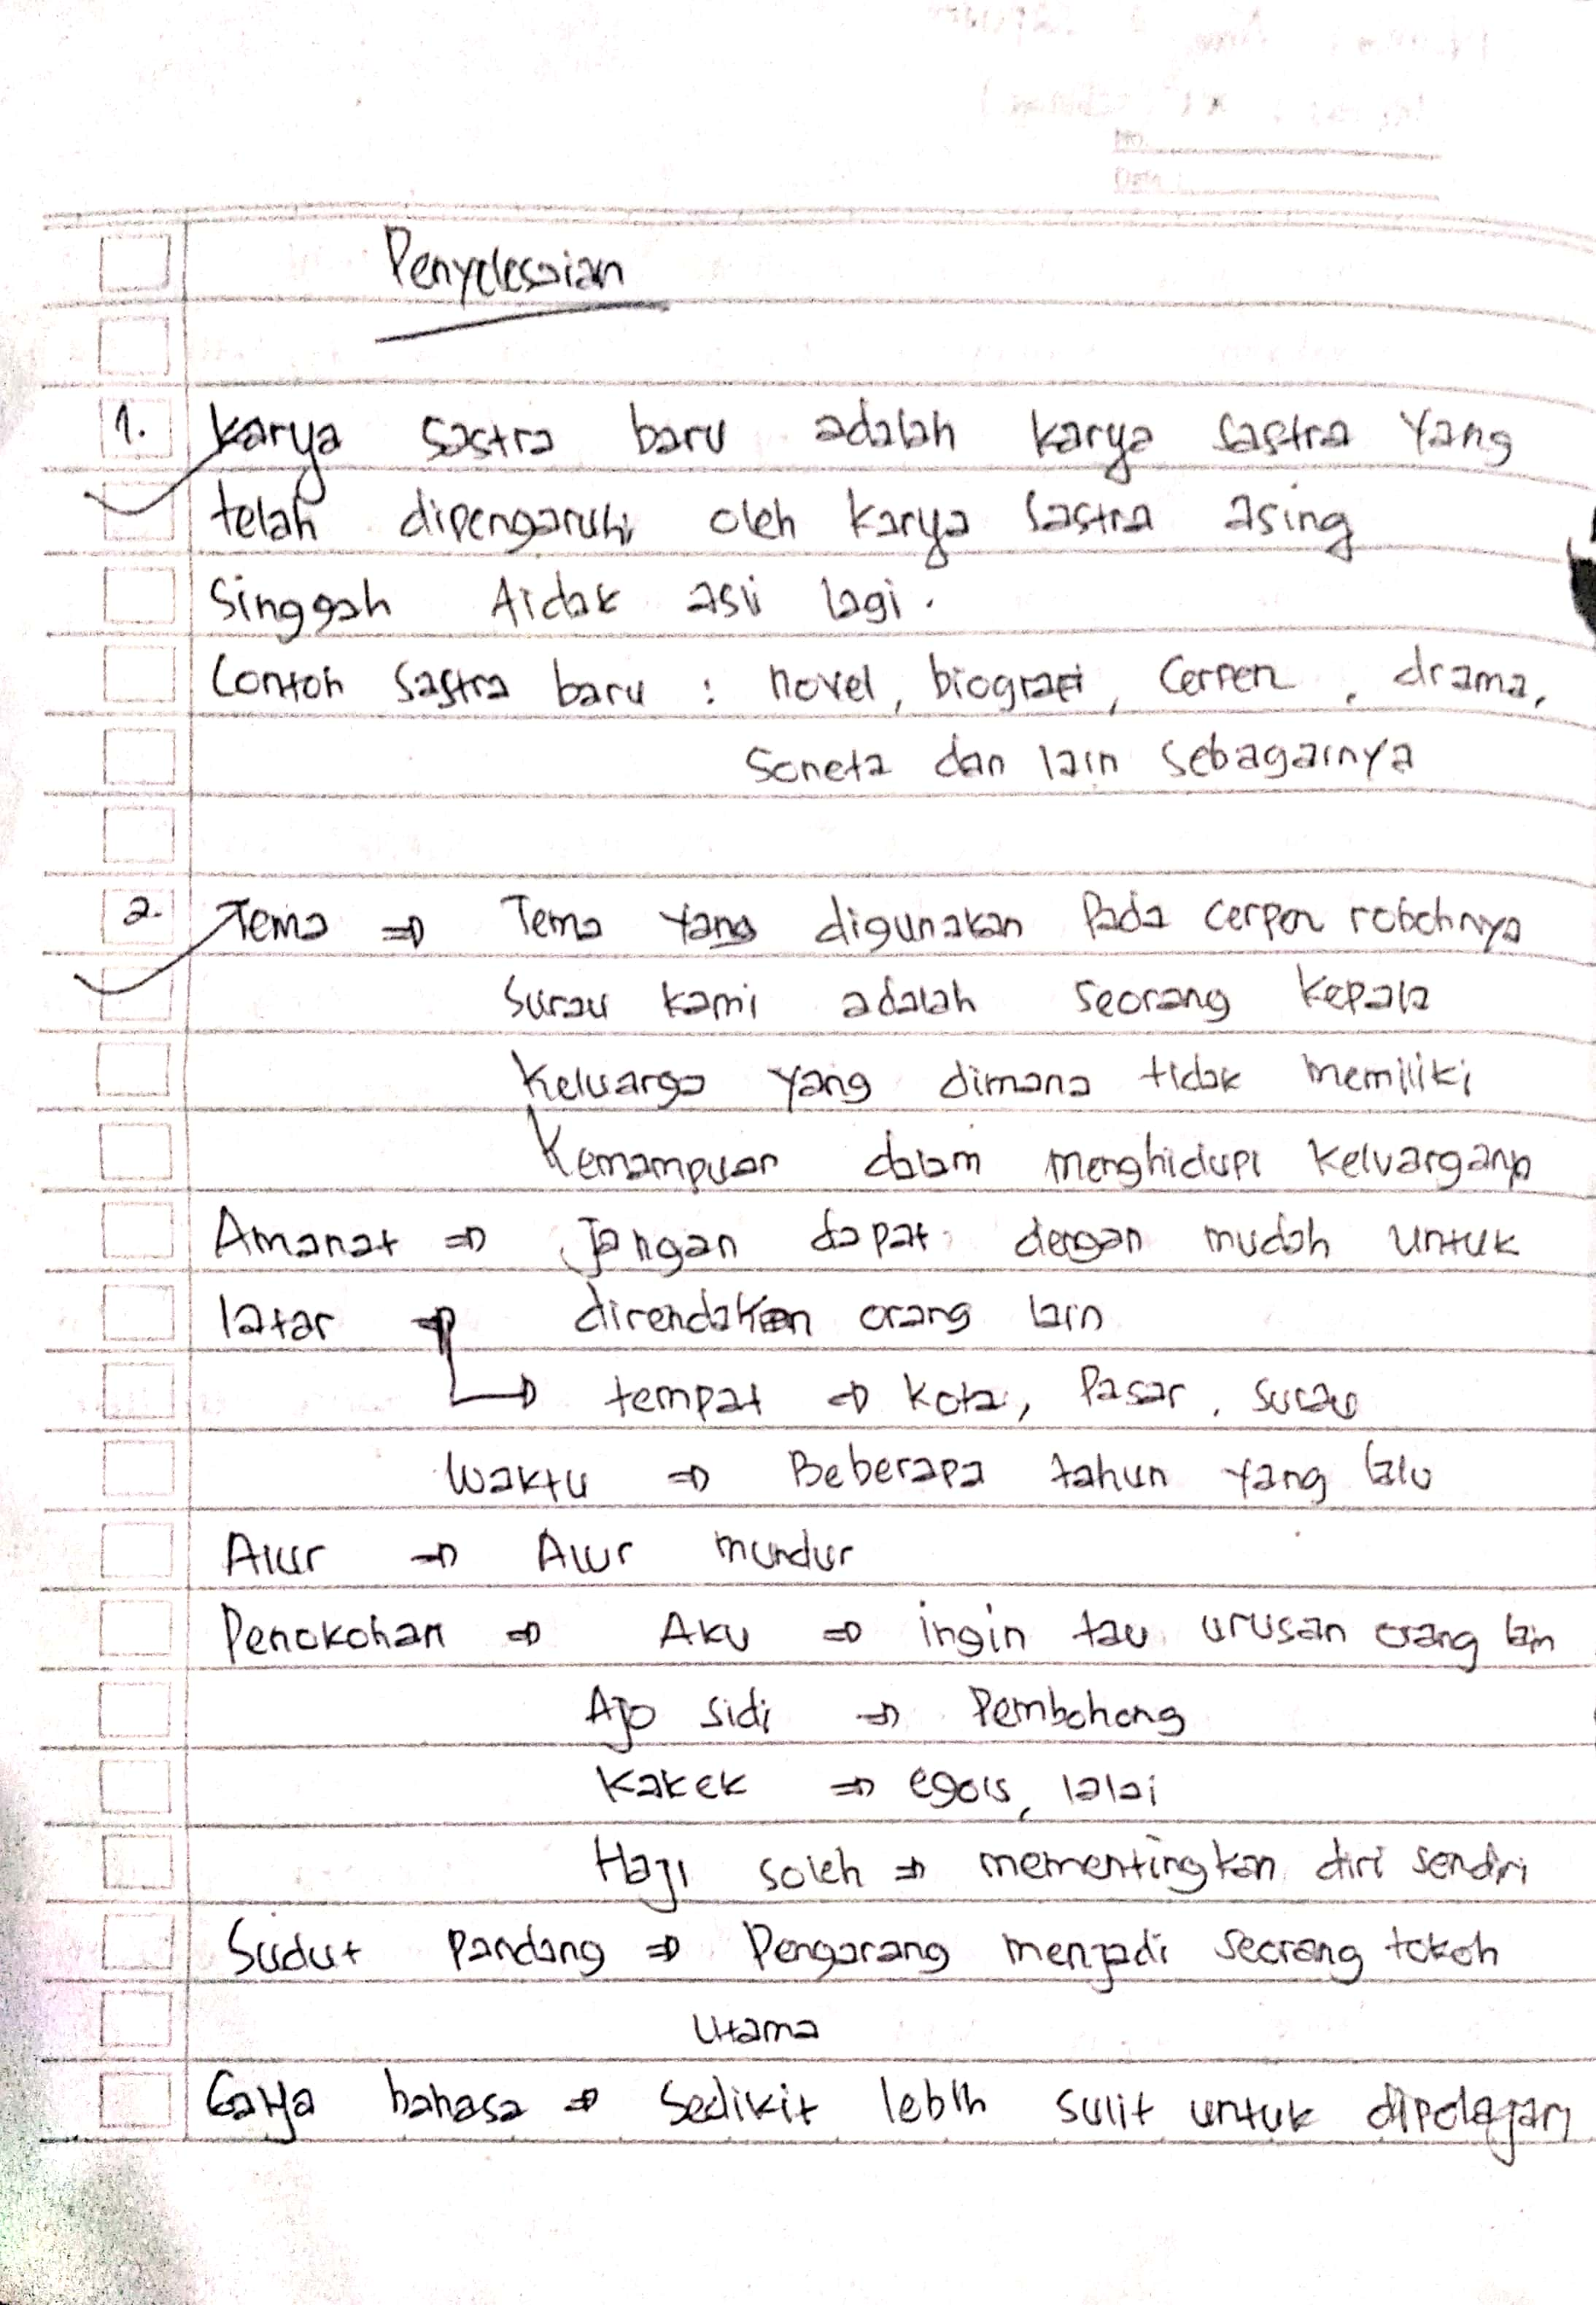 No.
Date :
Penyelesaian
1. Karya sastra baru adalah karya sastra yang
telah dipengaruhi oleh karya sastra asing
Singgah tidak asli lagi.
Contoh sastra baru : novel, biografi, Cerpen, drama,
Soneta dan lain sebagainya
2. Tema ⇒ Tema yang digunakan Pada cerpen robohnya
Surau kami adalah seorang kepala
Keluarga yang dimana tidak memiliki
Kemampuan dalam menghidupi keluarganya
Amanat ⇒ Jangan dapat dengan mudah untuk
latar ⇒ direndahkan orang lain
→ tempat ⇒ kota, Pasar, surau
Waktu ⇒ Beberapa tahun yang lalu
Alur ⇒ Alur mundur
Penokohan ⇒ Aku ⇒ ingin tau urusan orang lain
Ajo sidi ⇒ Pembohong
Kakek ⇒ egois, lalai
Haji soleh ⇒ mementingkan diri sendiri
Sudut pandang ⇒ Pengarang menjadi seorang tokoh
Utama
Gaya bahasa ⇒ Sedikit lebih sulit untuk dipelajari